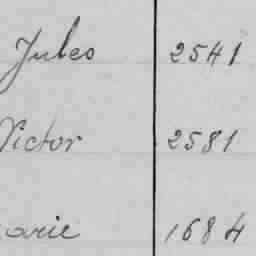 Jules 2541
Victor 2581
arie 1684